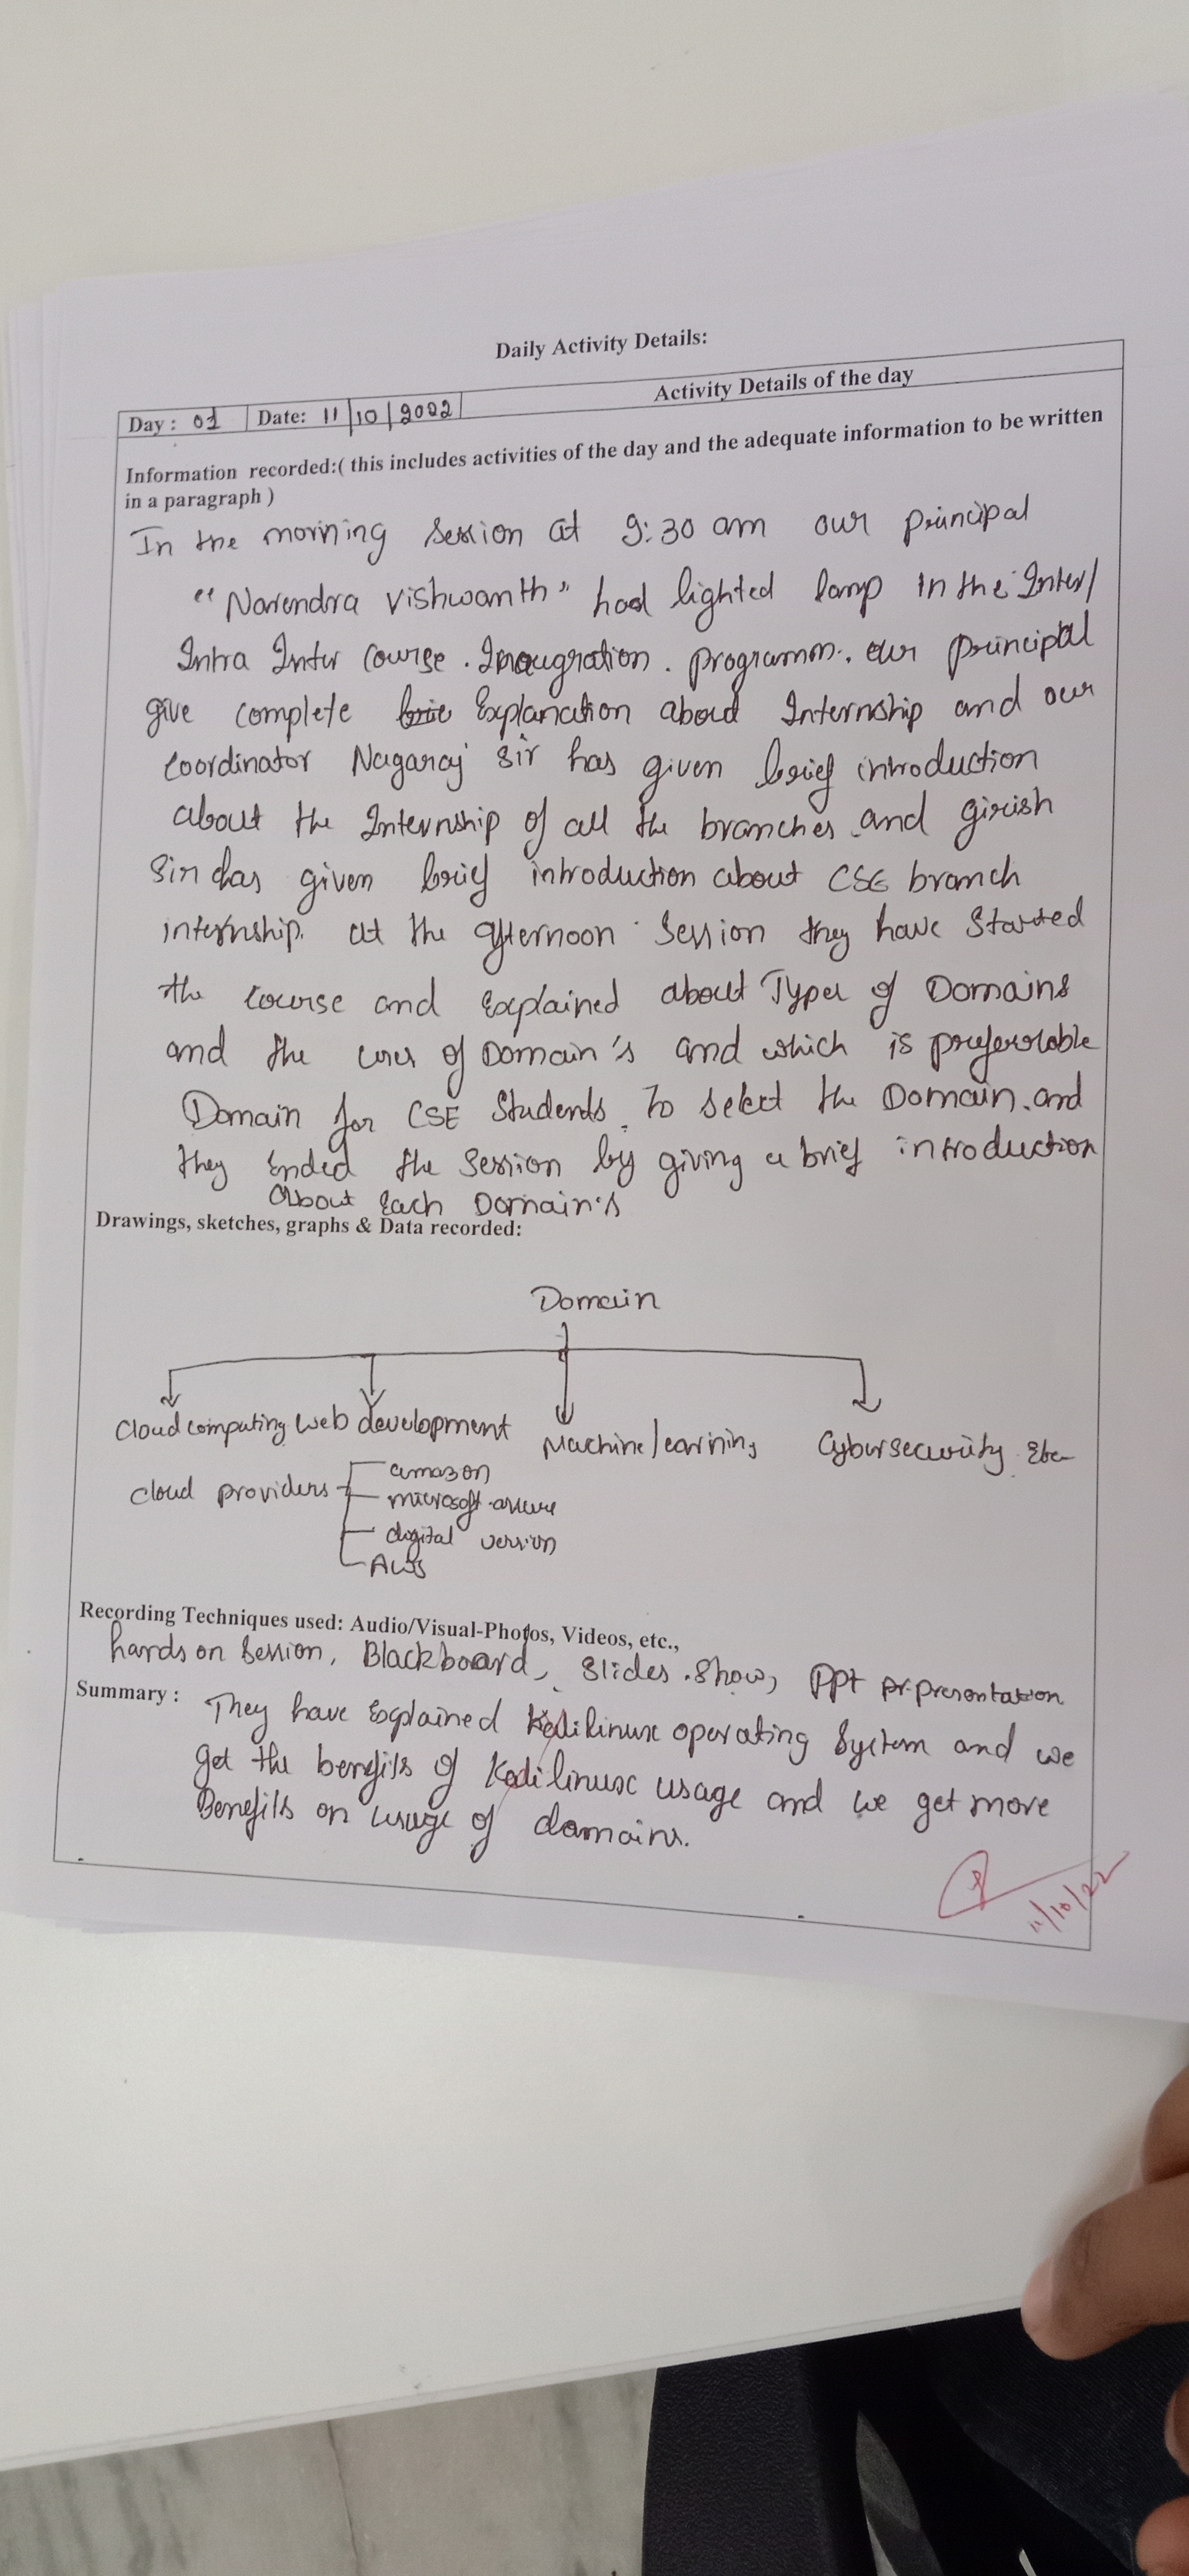 Daily Activity Details:
Activity Details of the day
Day : 01 Date: 11/10/2022
Information recorded:( this includes activities of the day and the adequate information to be written
in a paragraph )
In the morning session at 9:30 am our principal
"Narendra Vishwanth" had lighted lamp in the Inter/
Intra Inter Course . Inaugration . programm. our principal
give complete Explanation about Internship and our
coordinator Nagaraj sir has given brief introduction
about the Internship of all the branches and girish
Sir has given brief introduction about CSE branch
internship. at the afternoon session they have Started
the course and Explained about Types of Domains
and the uses of Domain's and which is preferrable
Domain for CSE Students. To select the Domain. and
they Ended the Session by giving a brief introduction
About Each Domain's
Drawings, sketches, graphs & Data recorded:
Domain
Cloud computing Web development Machine learning Cybersecurity Etc
cloud providers amazon
microsoft azure
digital version
AWS
Recording Techniques used: Audio/Visual-Photos, Videos, etc.,
hands on Session, Blackboard, Slides show, PPt presentation
Summary : They have Explained Kalilinux operating System and we
get the benefits of Kalilinux usage and we get more
Benefits on usage of domains.
11/10/22